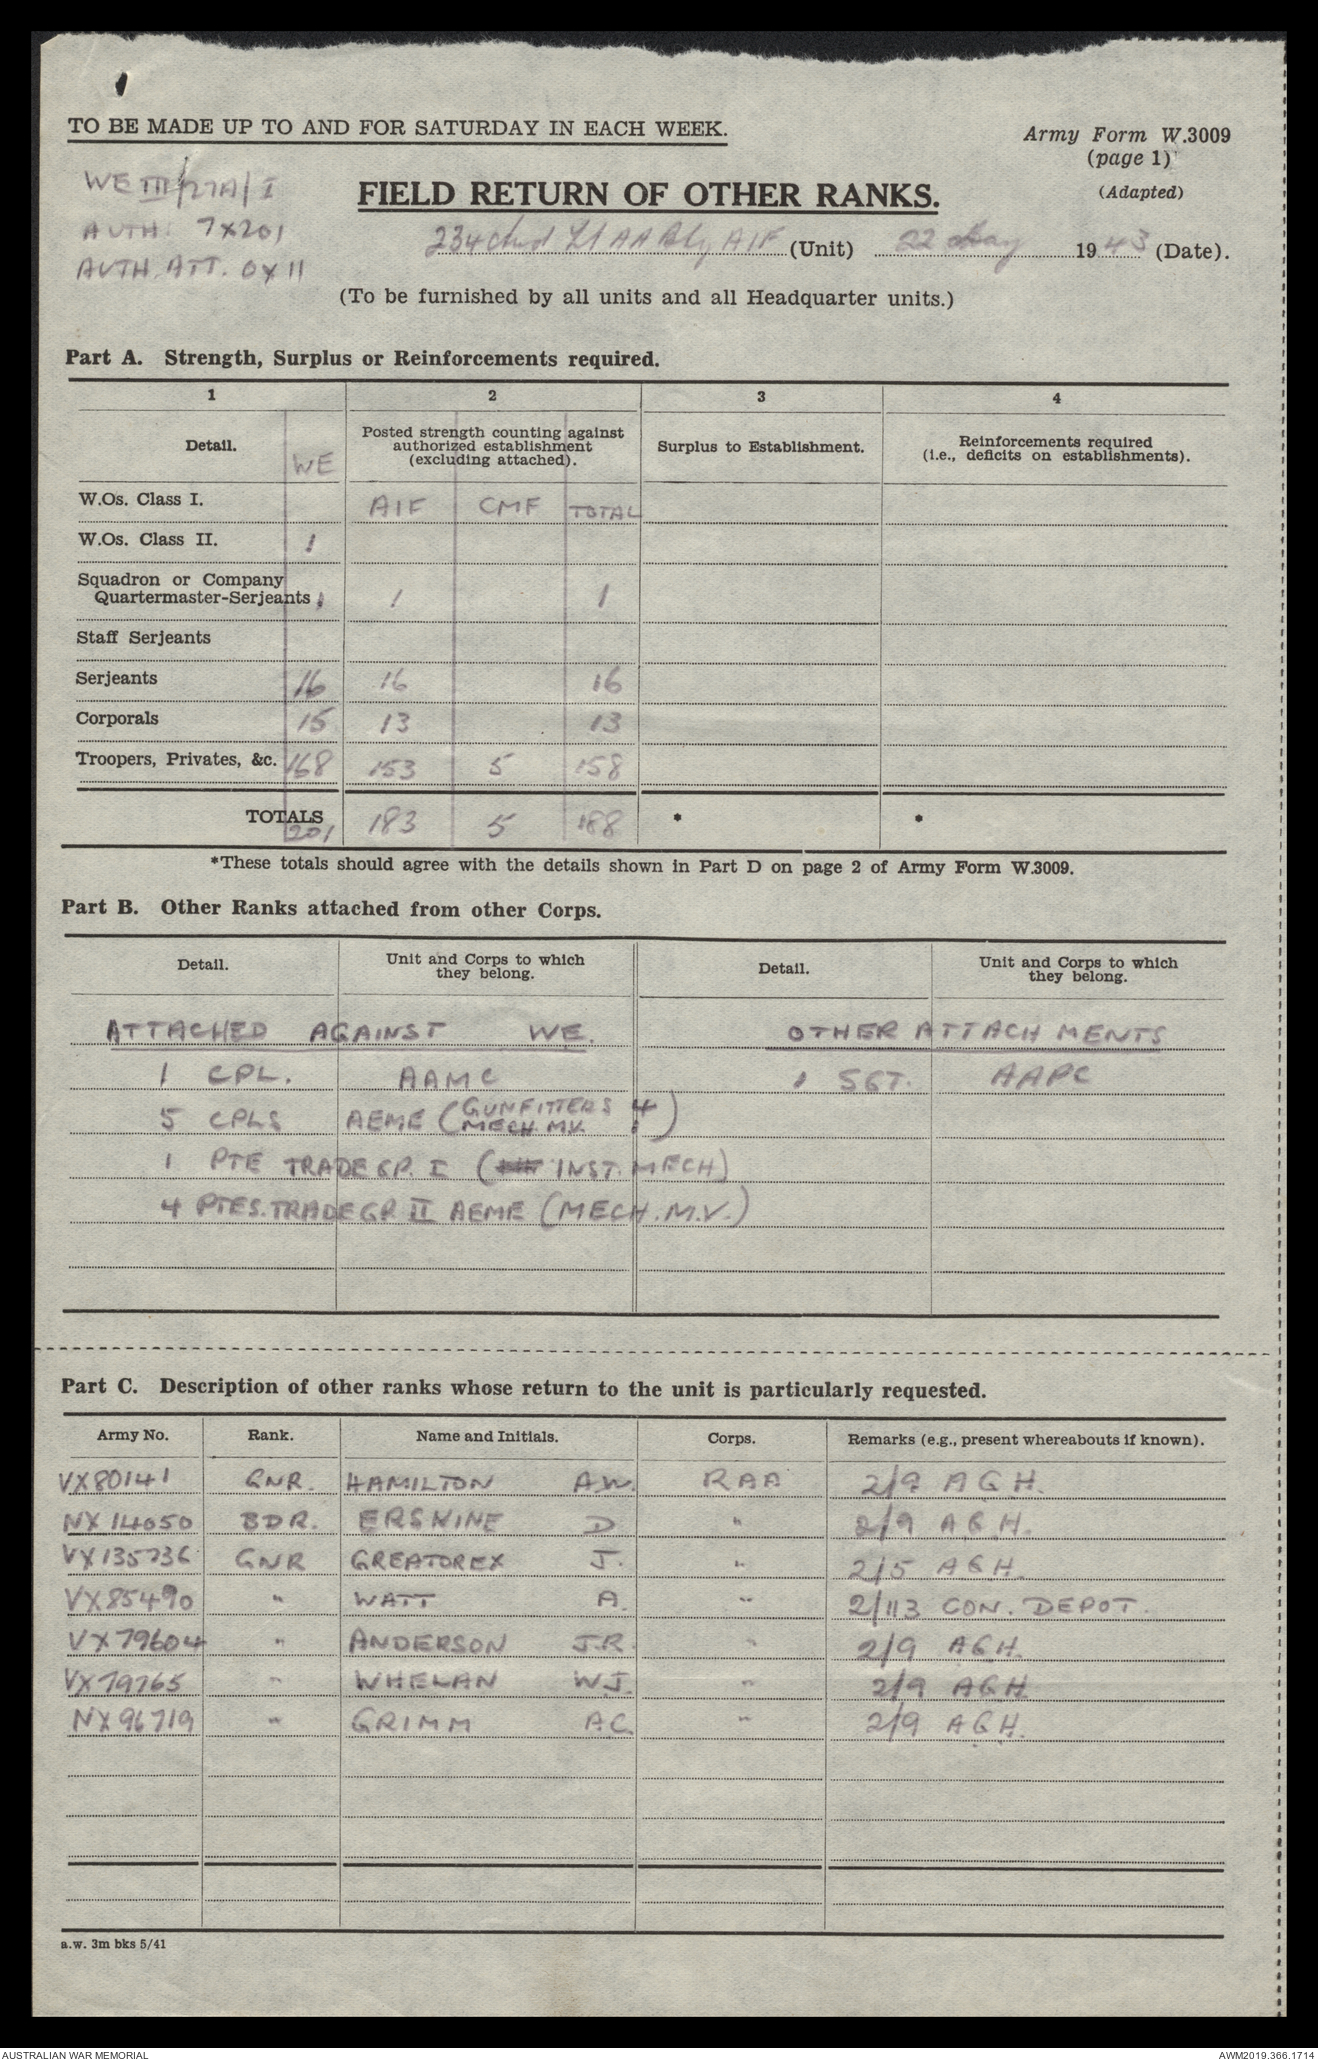 TO BE MADE UP TO AND FOR SATURDAY IN EACH WEEK.
Army Form W.3009
(page 1)
(Adapted)
WE III/27A/I
AUTH: 7X201
AUTH. ATT. 0X11
FIELD RETURN OF OTHER RANKS.
Lt AA Bty AIF (Unit) 22 May 1943 (Date).
(To be furnished by all units and all Headquarter units.)
Part A. Strength, Surplus or Reinforcements required.
1 2 3 4
Detail. WE Posted strength counting against authorized establishment (excluding attached). Surplus to Establishment. Reinforcements required (i.e., deficits on establishments).
W.Os. Class I. AIF CMF TOTAL
W.Os. Class II. 1
Squadron or Company
Quartermaster-Serjeants 1 1 1
Staff Serjeants
Serjeants 16 16 16
Corporals 15 13 13
Troopers, Privates, &c. 168 153 5 158
TOTALS 201 183 5 188 * *
*These totals should agree with the details shown in Part D on page 2 of Army Form W.3009.
Part B. Other Ranks attached from other Corps.
Detail. Unit and Corps to which they belong. Detail. Unit and Corps to which they belong.
ATTACHED AGAINST WE. OTHER ATTACHMENTS
1 CPL. AAMC 1 SGT. AAPC
5 CPLS AEME (GUNFITTERS 4
MECH. MV. 1)
1 PTE TRADE GP. I (INST. MECH)
4 PTES. TRADE GP. II AEME (MECH. M.V.)
Part C. Description of other ranks whose return to the unit is particularly requested.
Army No. Rank. Name and Initials. Corps. Remarks (e.g., present whereabouts if known).
VX80141 GNR. HAMILTON A.W. RAA 2/9 AGH.
NX14050 BDR. ERSKINE D " 2/9 AGH.
VX135736 GNR GREATOREX J. " 2/5 AGH.
VX85490 " WATT A. " 2/113 CON. DEPOT.
VX79604 " ANDERSON J.R. " 2/9 AGH.
VX79765 " WHELAN W.J. " 2/9 AGH
NX96719 " GRIMM A.C. " 2/9 AGH.
a.w. 3m bks 5/41
AUSTRALIAN WAR MEMORIAL
AWM2019.366.1714